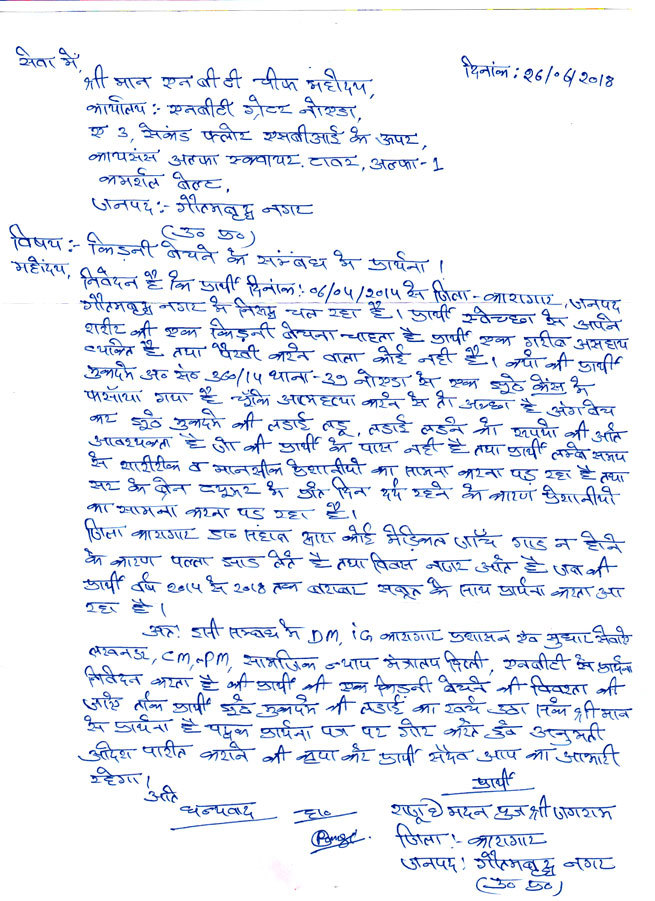 सेवा में,
दिनांक: 26/06/2018
श्री मान एनबीटी चीफ महोदय,
कार्यालय:- एनबीटी ग्रेटर नोएडा,
ए 3, सेकंड फ्लोर एसबीआई के ऊपर,
कायसंस अल्फा स्क्वायर टावर, अल्फा-1
कमर्शल बेल्ट,
जनपद:- गौतमबुद्ध नगर
(उ० प्र०)
विषय:- किडनी बेचने के सम्बंध मे प्रार्थना।
महोदय,
निवेदन है कि प्रार्थी दिनांक: 06/04/2014 से जिला-कारागार, जनपद
गौतमबुद्ध नगर मे निरुद्ध चल रहा है। प्रार्थी स्वेच्छा से अपने
शरीर की एक किडनी बेचना चाहता है प्रार्थी एक गरीब असहाय
व्यक्ति है तथा पैरवी करने वाला कोई नही है। क्यो की प्रार्थी
मुकदमे अ० सं० 360/14 थाना-39 नोएडा से एक झूठे केस मे
फसाया गया है चूंकि आत्महत्या करने से तो अच्छा है अंग बेच
कर झूठे मुकदमे की लडाई लडू, लडाई लडने को रूपयो की अति
आवश्यकता है जो की प्रार्थी के पास नही है तथा प्रार्थी लम्बे समय
से शारीरीक व मानसीक परेशानीयो का सामना करना पड रहा है तथा
सर के ब्रेन ट्यूमर मे प्रति दिन दर्द रहने के कारण परेशानीयो
का सामना करना पड रहा है।
जिला कारागार डा० द्वारा कोई मेडिकल जाँच गाड न होने
के कारण पल्ला झाड लेते है तथा विवस नजर आते है जब की
प्रार्थी वर्ष 2014 से 2018 तक बराबर सबूत के साथ प्रार्थना करता आ
रहा है।
अत: इसी सम्बंध मे DM, IG कारागार प्रशासन एंव सुधार सेवाऐ
लखनऊ, CM, PM, सामाजिक न्याय मंत्रालय दिल्ली, एनबीटी से प्रार्थना
निवेदन करता है की प्रार्थी की एक किडनी बेचने की की
जाऐ ताकि प्रार्थी झूठे मुकदमे की लडाई का खर्च उठा सके श्री मान
से प्रार्थना है प्रार्थना पत्र पर गौर करते हुऐ अनुमती
आदेश पारीत कराने की कृपा करे प्रार्थी सदैव आप का आभारी
रहेगा।
अति
धन्यवाद
प्रार्थी
ह०
राजू @ मदन पुत्र श्री जगराम
जिला:- कारागार
जनपद: गौतमबुद्ध नगर
(उ० प्र०)